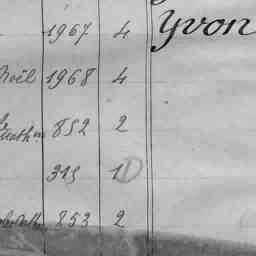 1967 4 Yvon
Noël 1968 4
852 2
315 1
853 2